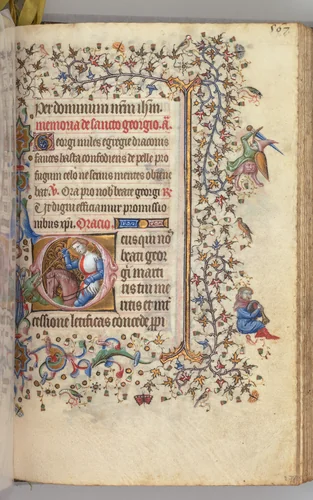 Per dominum nrm ihm.
memoria de sancto georgio. a.
Georgi miles egregie draconis
sauces hasta confodiens de pelle pro
fugium celo ne seruis mentes obtene
brat. V. Ora pro nob beate georgi R
Vt digni efficiamur promissio
nibus xpi. Oracio.
eus qui nos
beati geor
gii marti
ris tui me
ritis et int
cessione letificas concede ppi
307.